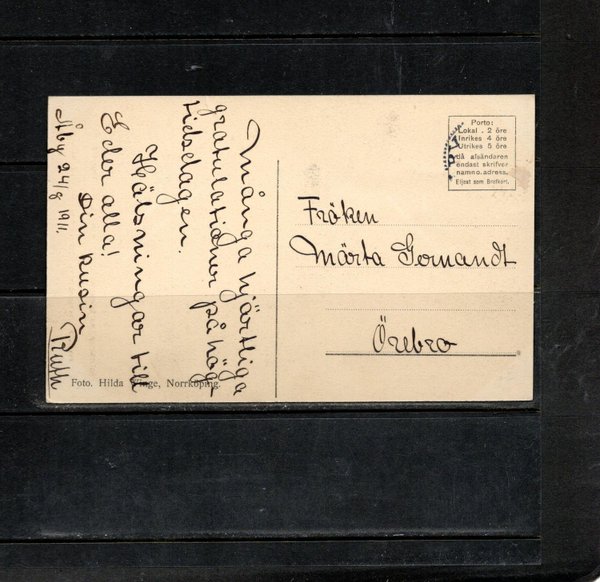 Många hjärtliga
gratulationer på hög
tidsdagen.
Hälsningar till
Eder alla!
Din kusin
Ruth
Åby 24/8 1911.
Foto. Hilda Norrköping.
Porto:
Lokal . 2 öre
Inrikes 4 öre
Utrikes 5 öre
då afsändaren
endast skrifver
namn o. adress.
Eljest som Brefkort.
Fröken
Märta Gernandt
Örebro